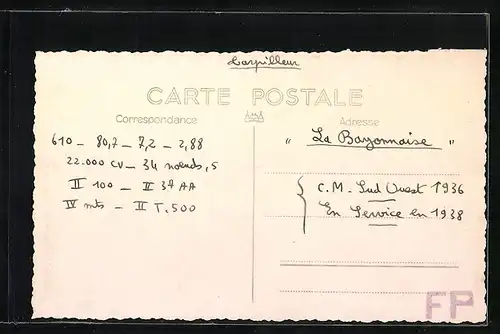 Torpilleur
CARTE POSTALE
Correspondance
Adresse
610 - 80,7 - 7,2 - 2,88
22.000 CV - 34 nœuds,5
II 100 - II 37 AA
IV mts - II T. 500
" La Bayonnaise "
C.M. Sud Ouest 1936
En Service en 1938
FP